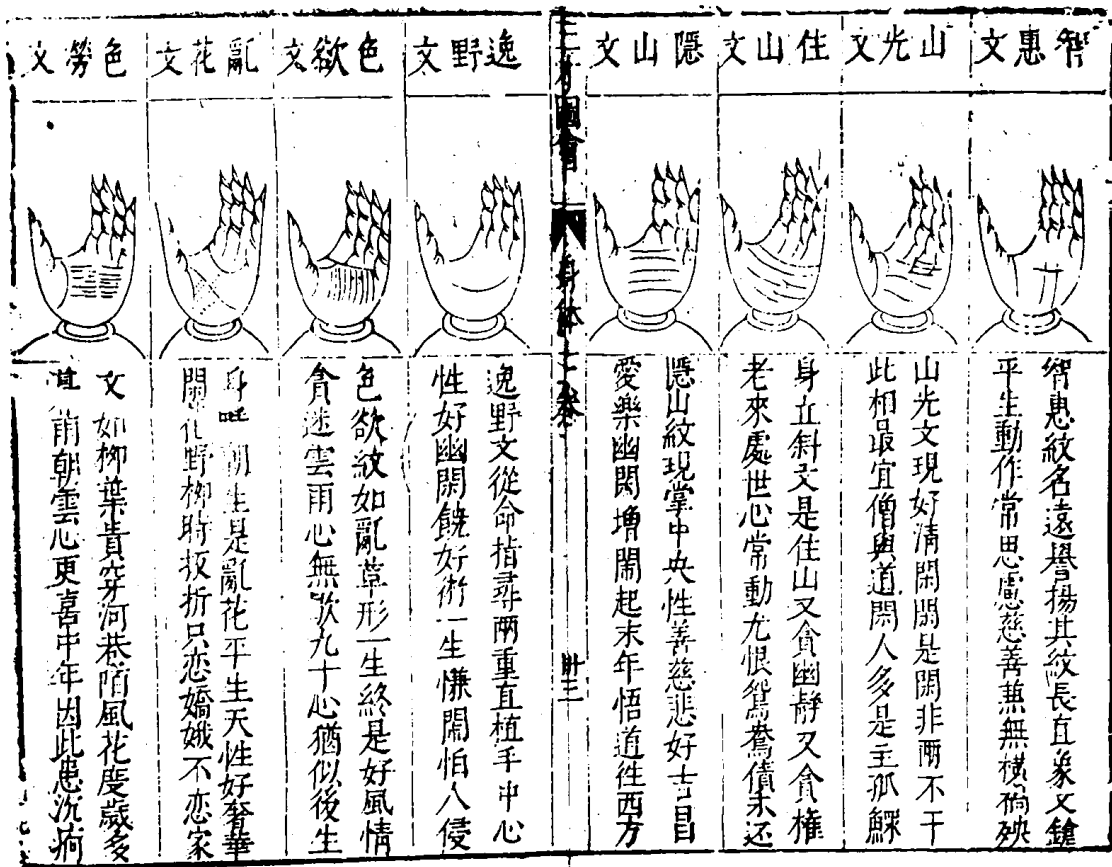 智惠文
智惠紋名遠譽揚其紋長直象文鎗
平生動作常思慮慈善兼無橫禍殃
山光文
山光文現好清閑閑是閑非兩不干
此相最宜僧與道閑人多是主孤鰥
住山文
身立斜文是住山又貪幽靜又貪權
老來處世心常動尤恨鴛鴦債未还
隱山文
隱山紋現掌中央性善慈悲好吉昌
愛樂幽閑增鬧起末年悟道往西方
三才圖會
身体七卷
卅三
逸野文
逸野文從命指尋兩重直植手中心
性好幽閑饒好術一生慊鬧怕人侵
色慾文
色欲紋如亂草形一生終是好風情
貪迷雲雨心無歇九十心猶似後生
亂花文
身 朝生是亂花平生天性好奢華
閑花野柳時扳折只恋嬌娥不恋家
色勞文
文如柳葉貴穿河巷陌風花度歲多
雨朝雲心更喜中年因此患沉疴